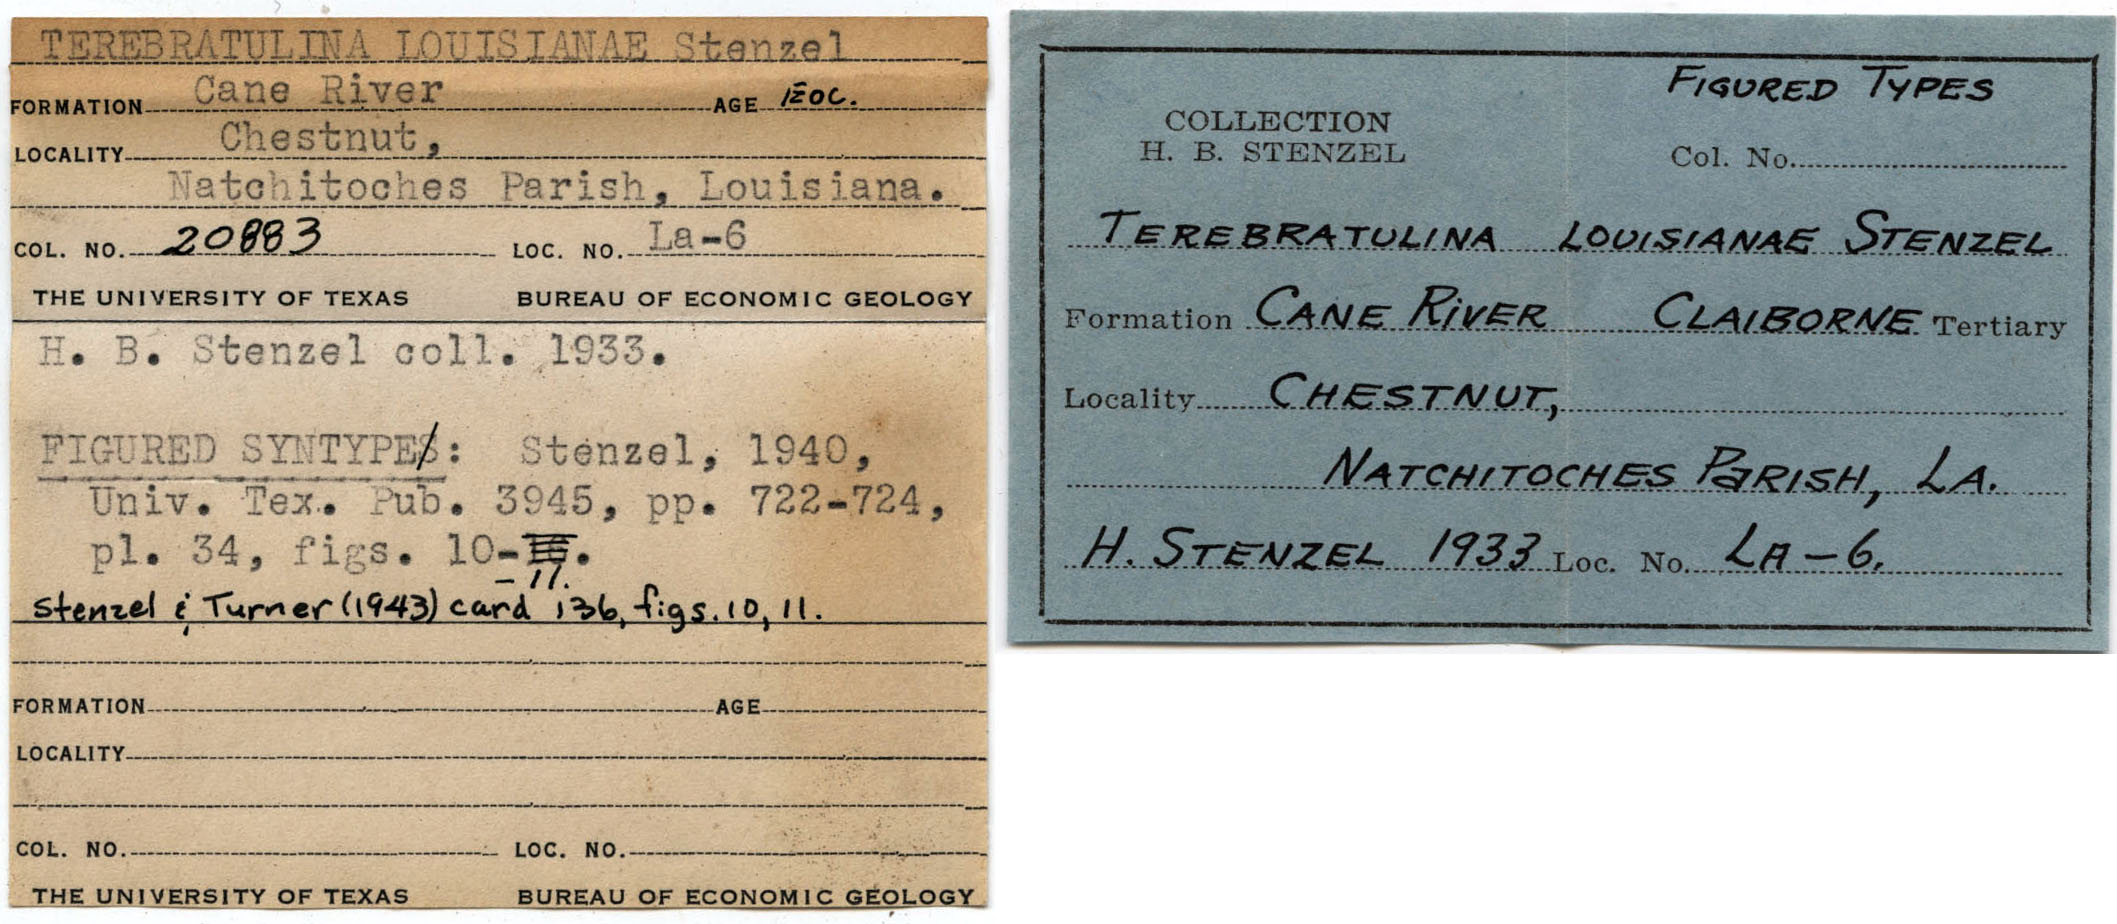 TEREBRATULINA LOUISIANAE Stenzel
FORMATION Cane River AGE Eoc.
LOCALITY Chestnut,
Natchitoches Parish, Louisiana.
COL. NO. 20883 LOC. NO. La-6
THE UNIVERSITY OF TEXAS BUREAU OF ECONOMIC GEOLOGY
H. B. Stenzel coll. 1933.
FIGURED SYNTYPE: Stenzel, 1940,
Univ. Tex. Pub. 3945, pp. 722-724,
pl. 34, figs. 10-
-11.
Stenzel & Turner (1943) card 136, figs. 10, 11.
FORMATION AGE
LOCALITY
COL. NO. LOC. NO.
THE UNIVERSITY OF TEXAS BUREAU OF ECONOMIC GEOLOGY
FIGURED TYPES
COLLECTION
H. B. STENZEL
Col. No.
TEREBRATULINA LOUISIANAE STENZEL
Formation CANE RIVER CLAIBORNE Tertiary
Locality CHESTNUT,
NATCHITOCHES PARISH, LA.
H. STENZEL 1933 Loc. No. LA-6.